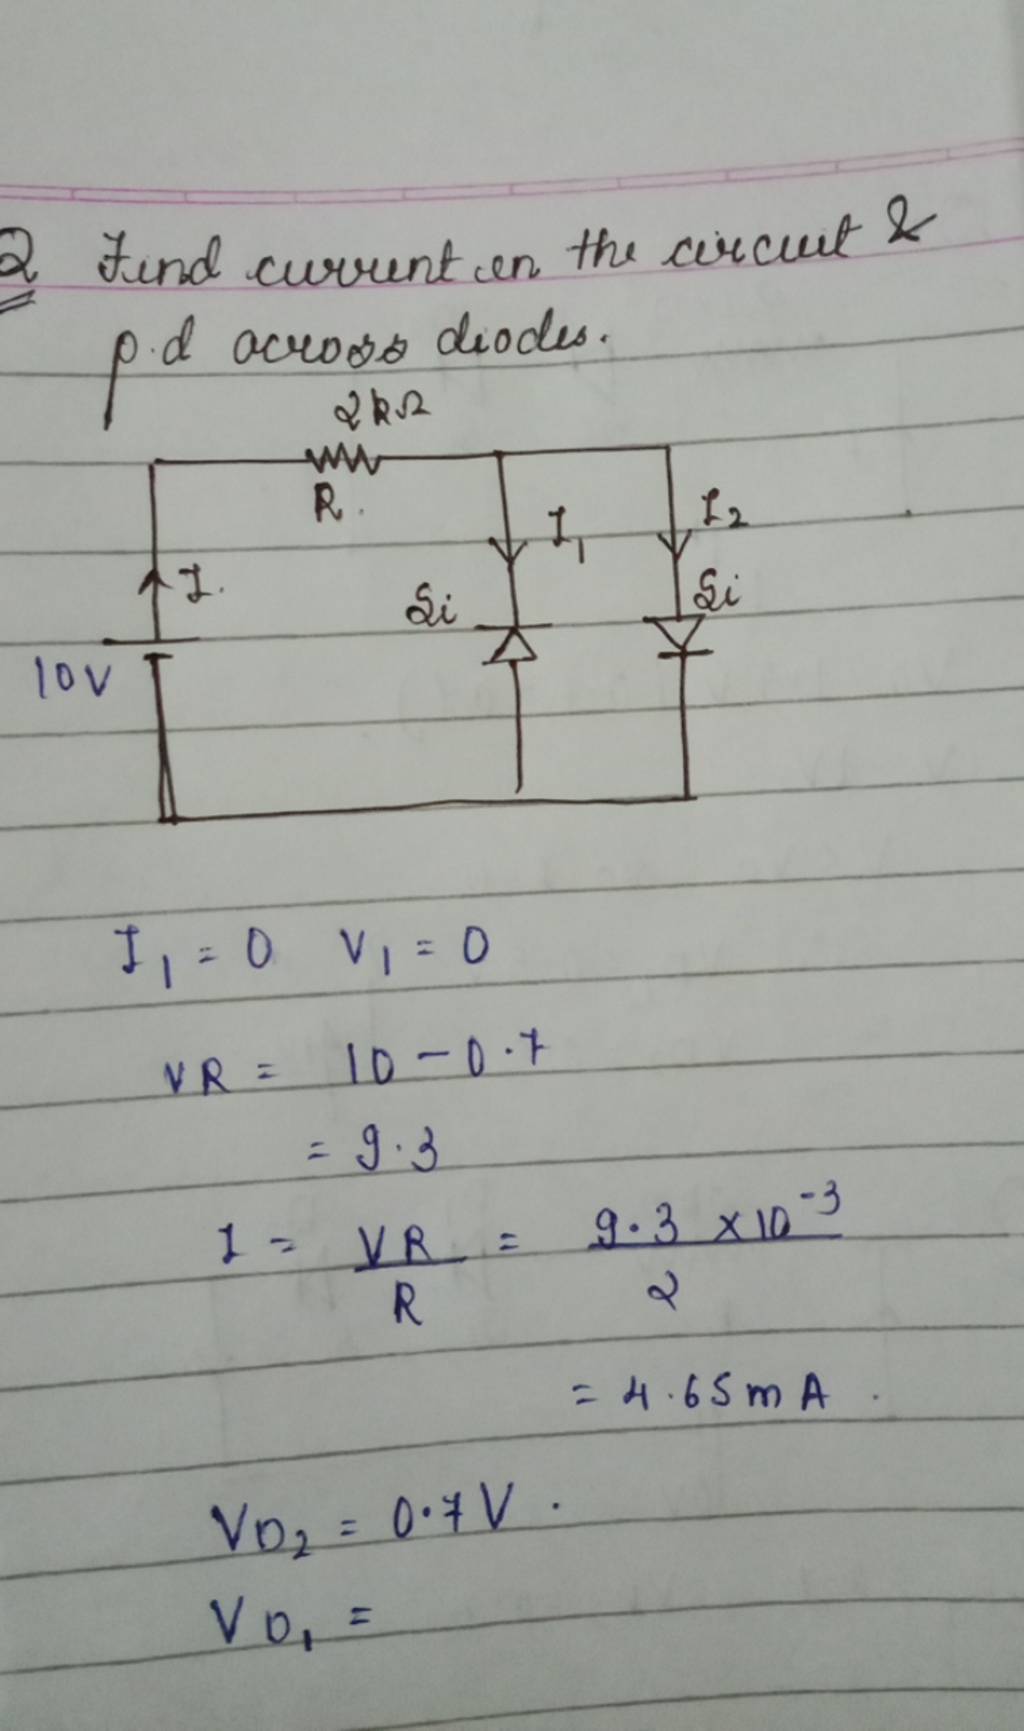 Q Find current in the circuit &
p.d across diodes.
2kΩ
R.
I.
I₁
I₂
Si
Si
10V
I₁ = 0 V₁ = 0
VR = 10 - 0.7
= 9.3
I = VR/R = 9.3 x10⁻³/2
= 4.65 mA.
VD₂ = 0.7V.
VD₁ =